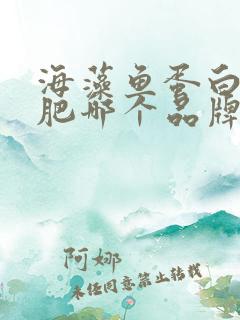 海藻鱼蛋白
肥哪个品牌
阿娜
未经同意禁止转载